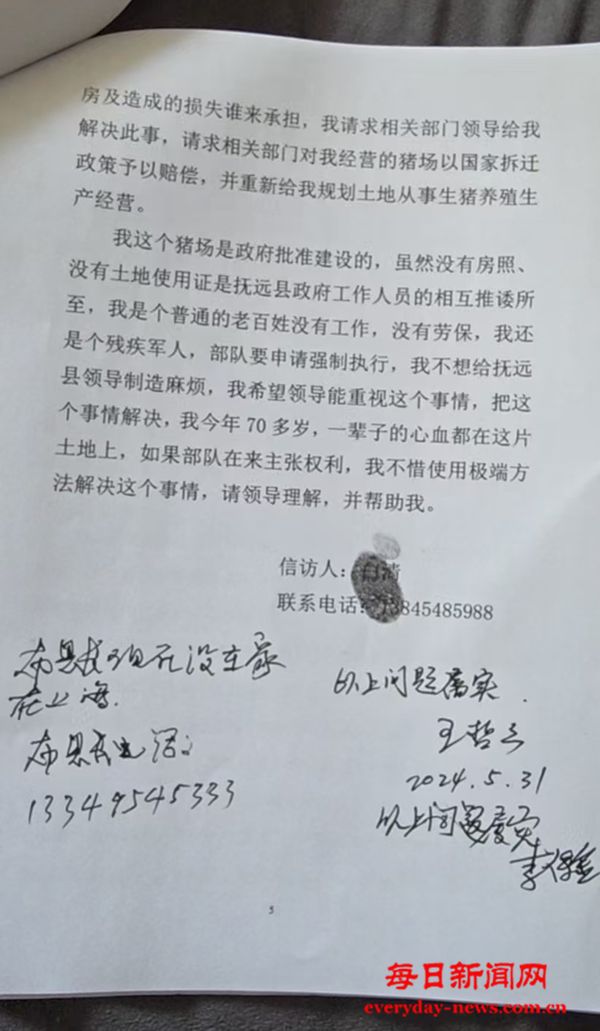 房及造成的损失谁来承担，我请求相关部门领导给我
解决此事，请求相关部门对我经营的猪场以国家拆迁
政策予以赔偿，并重新给我规划土地从事生猪养殖生
产经营。
我这个猪场是政府批准建设的，虽然没有房照、
没有土地使用证是抚远县政府工作人员的相互推诿所
至，我是个普通的老百姓没有工作，没有劳保，我还
是个残疾军人，部队要申请强制执行，我不想给抚远
县领导制造麻烦，我希望领导能重视这个事情，把这
个事情解决，我今年 70 多岁，一辈子的心血都在这片
土地上，如果部队在来主张权利，我不惜使用极端方
法解决这个事情，请领导理解，并帮助我。
信访人：清
联系电话：13845485988
县长现在没在家
在上海.
县长电话:
13349545333
以上问题属实.
王哲云
2024.5.31
以上问题属实
李
5
每日新闻网
everyday-news.com.cn